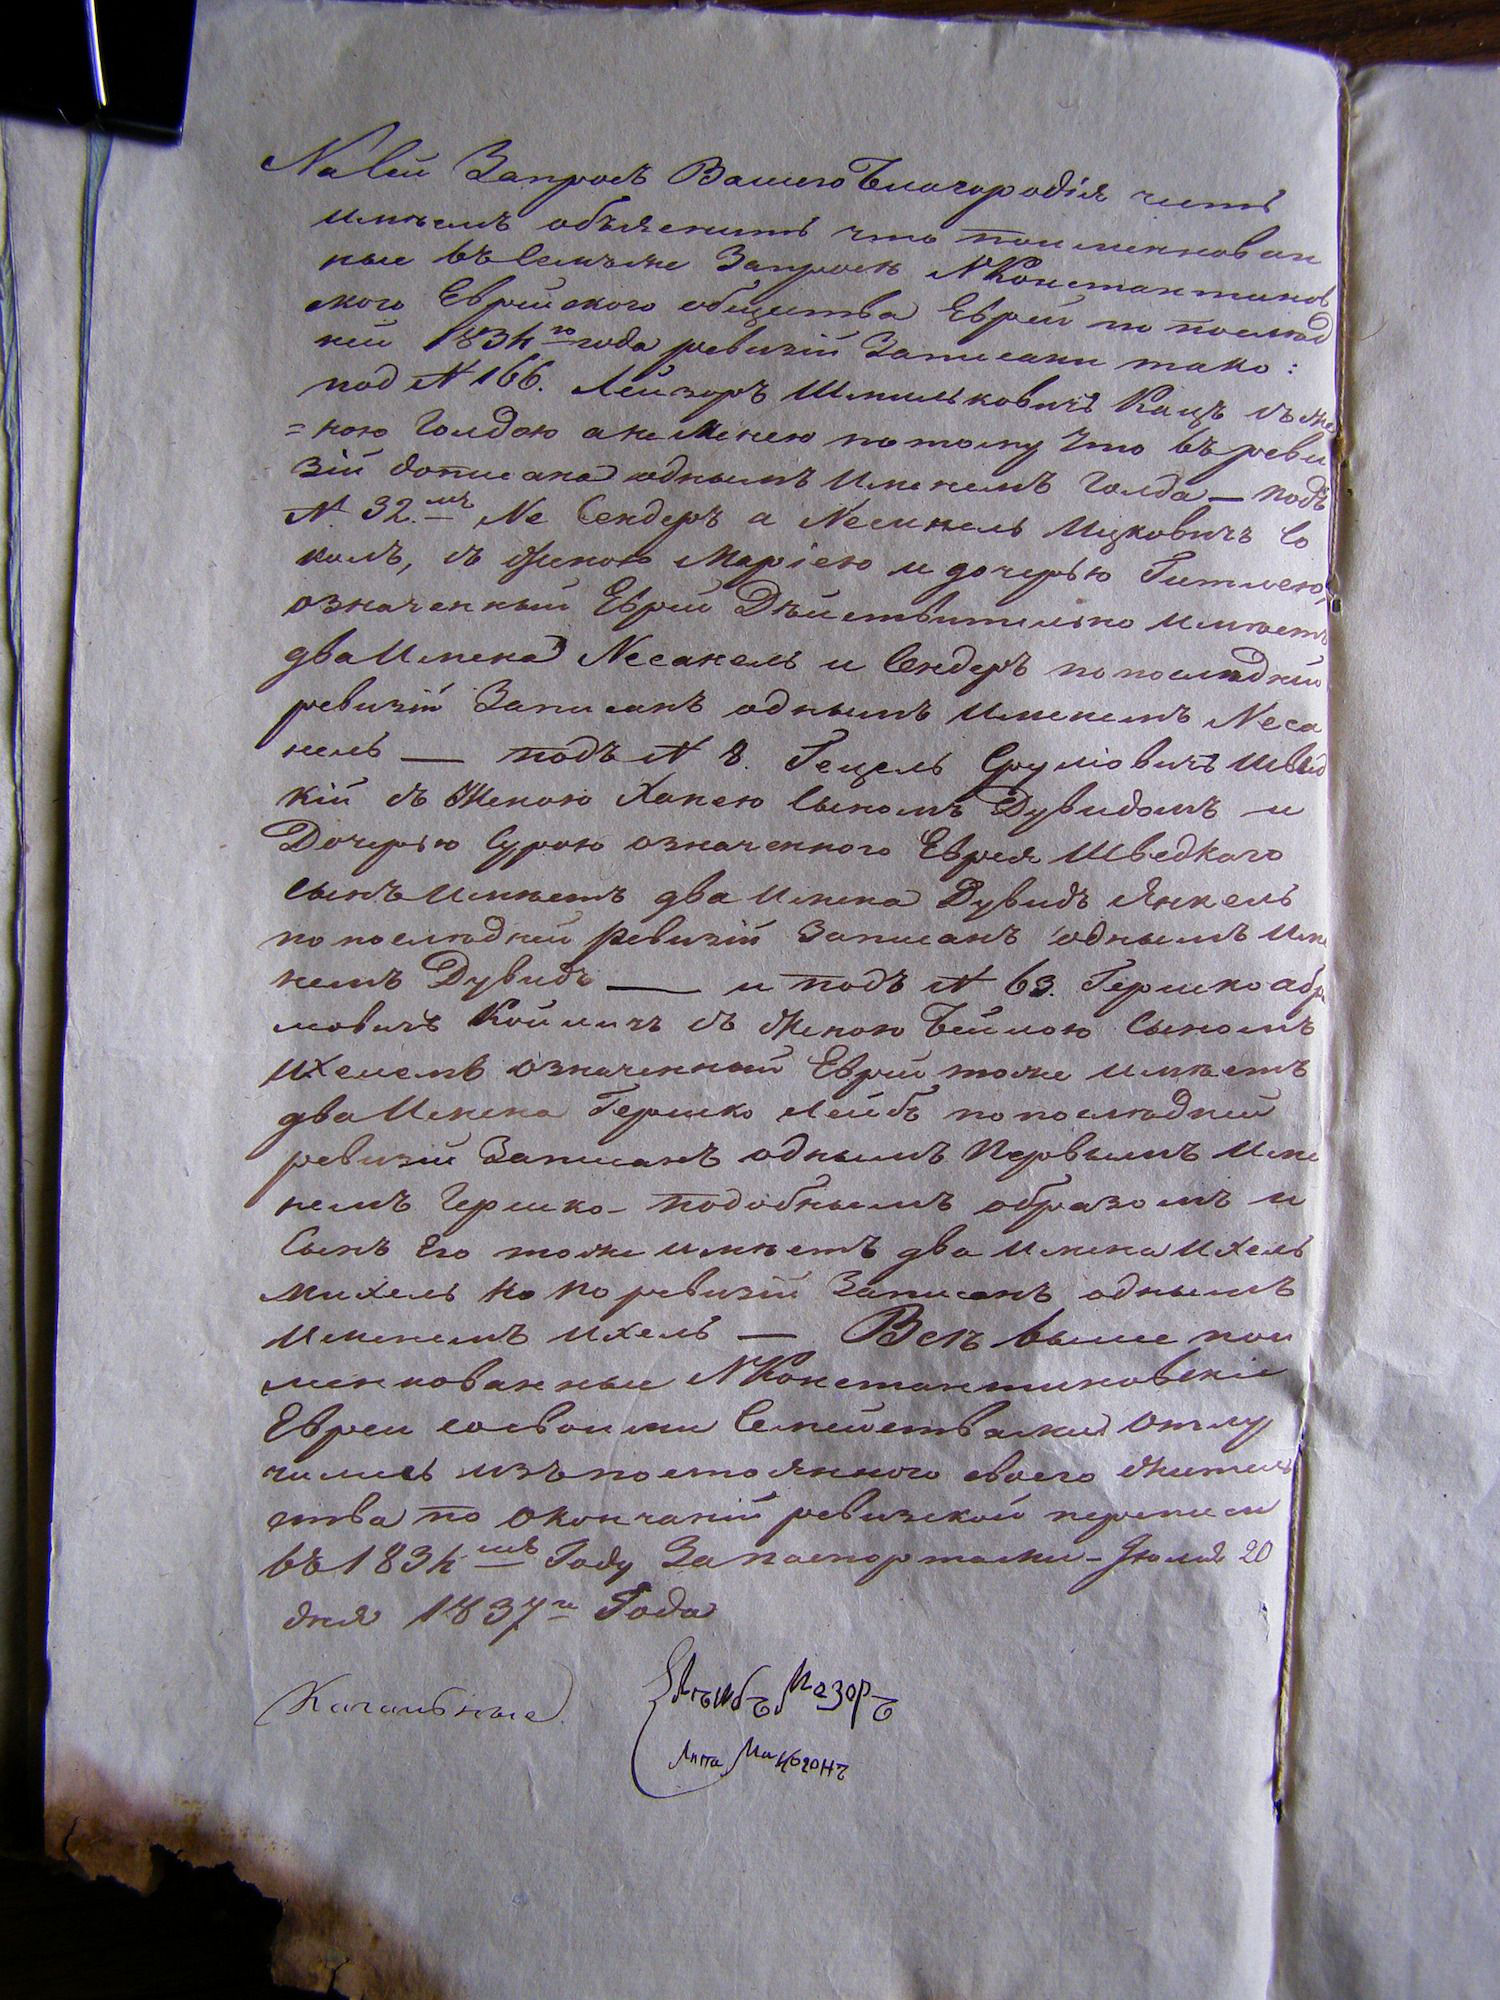 На сей Запросъ Вашего Благородія честь
имѣемъ объяснить что поименнован
ные въ семъ же Запросѣ NКонстантинов
ского Еврейского общества Еврей по послѣд
ней 1834го года ревизій Записани тако:
под N 166. Лейзоръ Шмильковичъ Кацъ съ же
=ною Голдою а не Менею потому что въ реви
зій дописана однымъ Именемъ Голда — подъ
N 32.мъ Не Сендеръ а Несанель Ицковичъ Со
колъ, съ Женою Маріею и дочерью Гитлею,
означенный Еврей Дѣйствительно Имѣетъ
два Имена Несанель и Сендеръ по послѣдней
ревизій Записанъ однымъ Именемъ Неса
нель — подъ N 8. Гецель Сруліовичъ Швед
кій съ Женою Ханею Сыномъ Дувидомъ и
Дочерью Сурою означенного Еврея Шведкаго
сынъ Имѣетъ два Имена Дувидъ Янкель
по послѣдней ревизій Записанъ однымъ Име
немъ Дувидъ — и подъ N 63. Гершко Абра
мовичъ Койличъ съ Женою Бейлою Сыномъ
Ихелемъ означенный Еврей тоже имѣетъ
два Имена Гершко Лейбъ по послѣдней
ревизій Записанъ однымъ Первымъ Име
немъ Гершко — подобнымъ образомъ и
Сынъ Его тоже имѣетъ два Имена Ихель
Михель но по ревизій Записанъ однымъ
Именемъ Ихель — Всѣ выше пои
менкованные NКонстантиновскіе
Евреи сосвоими Семействами Отлу
чились изъ постоянного своего жытель
ства по Окончаній ревизской переписи
въ 1834мъ Году За паспортами — Іюля 20
дня 1837го Года
Кагальные
Мазоръ
Липа Макогонъ